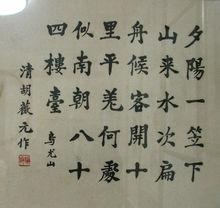 夕陽一笠下
山来水次扁
舟候客開十
里平羌何處
似南朝八十
四樓臺 乌尤山
清胡薇元作